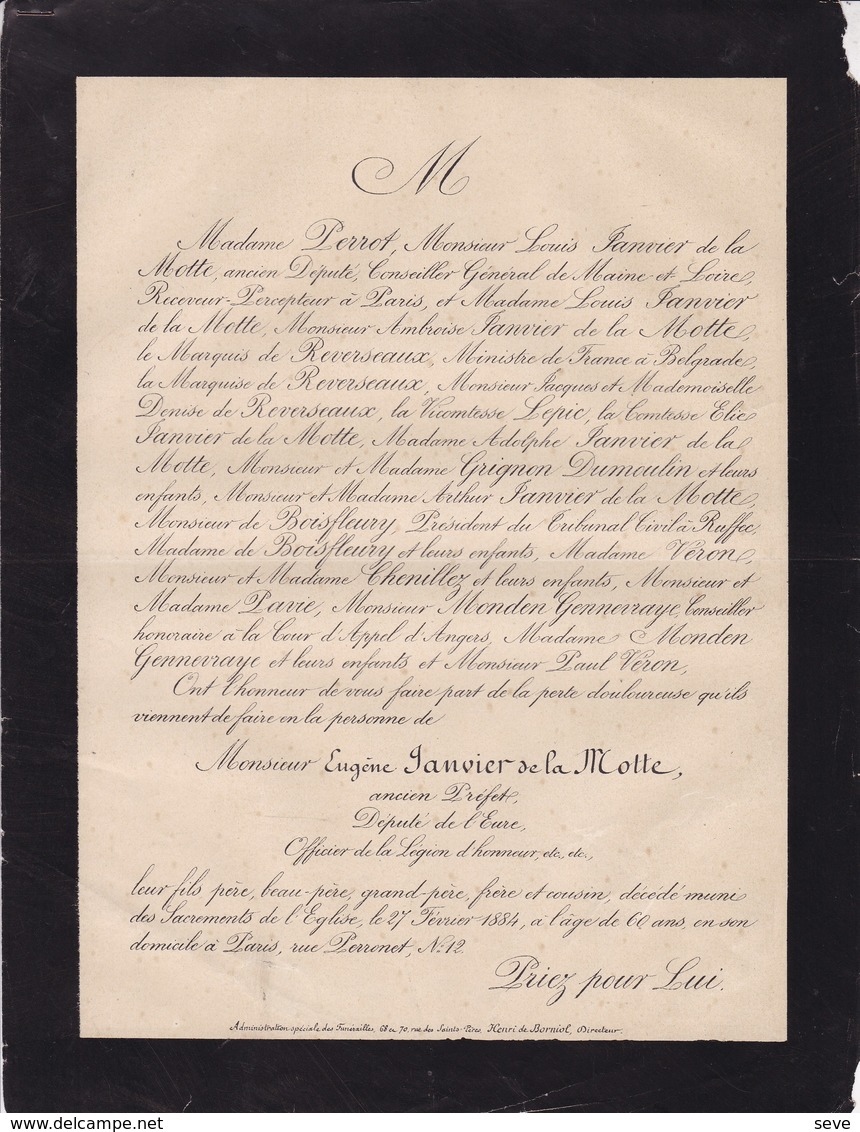 M
Madame Perrot, Monsieur Louis Janvier de la
Motte, ancien Député, Conseiller Général de Maine-et-Loire,
Receveur-Percepteur à Paris, et Madame Louis Janvier
de la Motte, Monsieur Ambroise Janvier de la Motte,
le Marquis de Reverseaux, Ministre de France à Belgrade,
la Marquise de Reverseaux, Monsieur Jacques et Mademoiselle
Denise de Reverseaux, la Vicomtesse Lepic, la Comtesse Elie
Janvier de la Motte, Madame Adolphe Janvier de la
Motte, Monsieur et Madame Grignon Dumoulin et leurs
enfants, Monsieur et Madame Arthur Janvier de la Motte,
Monsieur de Boisfleury, Président du Tribunal Civil à Ruffec,
Madame de Boisfleury et leurs enfants, Madame Véron,
Monsieur et Madame Chenillez et leurs enfants, Monsieur et
Madame Pavie, Monsieur Monden Gennevraye, Conseiller
honoraire à la Cour d'Appel d'Angers, Madame Monden
Gennevraye et leurs enfants et Monsieur Paul Véron,
Ont l'honneur de vous faire part de la perte douloureuse qu'ils
viennent de faire en la personne de
Monsieur Eugène Janvier de la Motte,
ancien Préfet,
Député de l'Eure,
Officier de la Légion d'honneur, etc, etc,
leur fils père, beau-père, grand-père, frère et cousin, décédé muni
des Sacrements de l'Eglise, le 27 Février 1884, à l'âge de 60 ans, en son
domicile à Paris, rue Perronet, N.12.
Priez pour Lui.
Administration spéciale des Funérailles, 68 et 70, rue des Saints-Pères, Henri de Borniol, Directeur.
delcampe.net
seve